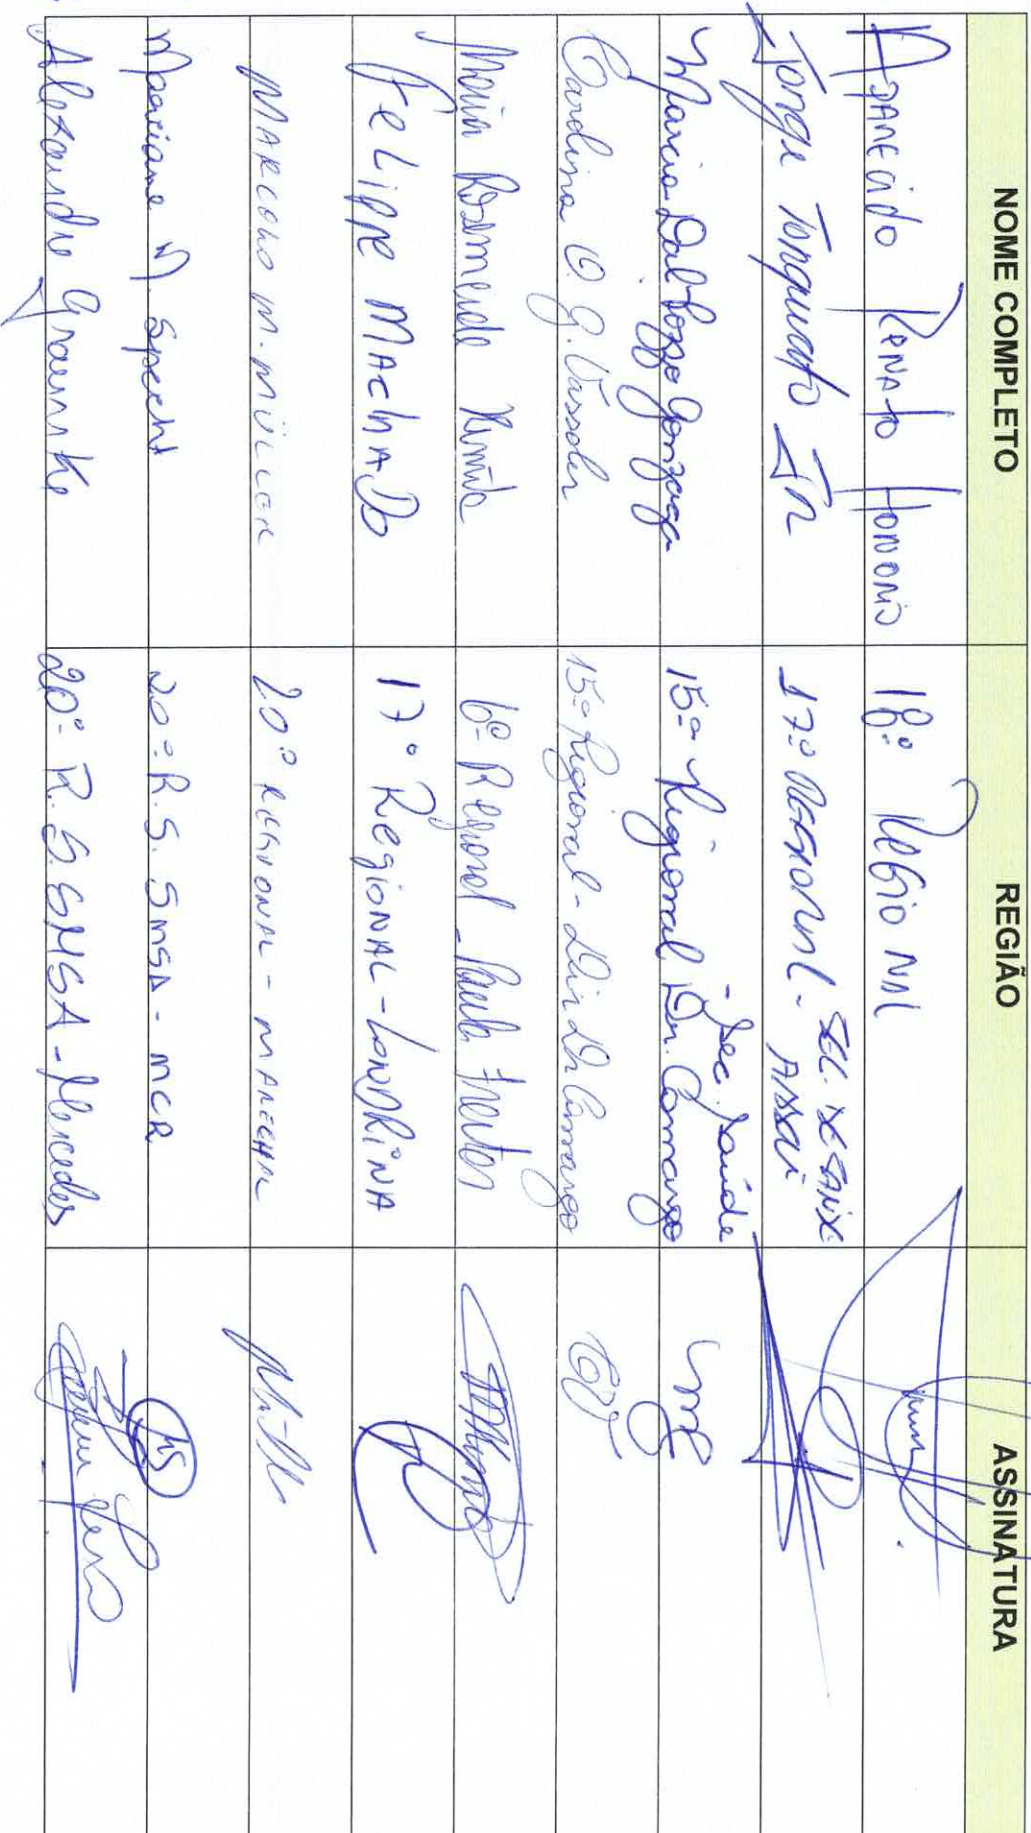 NOME COMPLETO REGIÃO ASSINATURA
Aparecido Renato Honorio 18º Regional
Jorge Torquato Jr 17º Regional - Sec. de Saúde
Assai
Marcia Dal Pozzo Gonzaga 15ª Regional Dr. Camargo
- Sec. Saúde
Carolina O. G. Vassoler 15ª Regional - Dir Dr Camargo
Maria Rosmeide 6ª Regional - Paula Freitas
Felippe Machado 17º Regional - Londrina
Marcelo M. Müller 20º Regional - Marechal
Mariane N. Specht 20ª R.S. SMSA - MCR
Alexandre Graunke 20ª R.S. SMSA - Mercedes